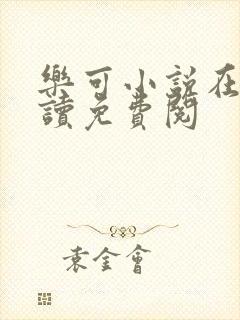 樂可小說在
讀免費閱
袁金會